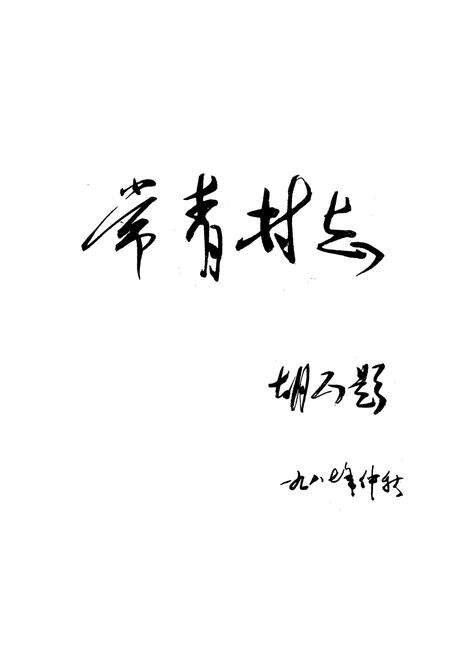 常青村志
胡石题
一九八七年仲秋